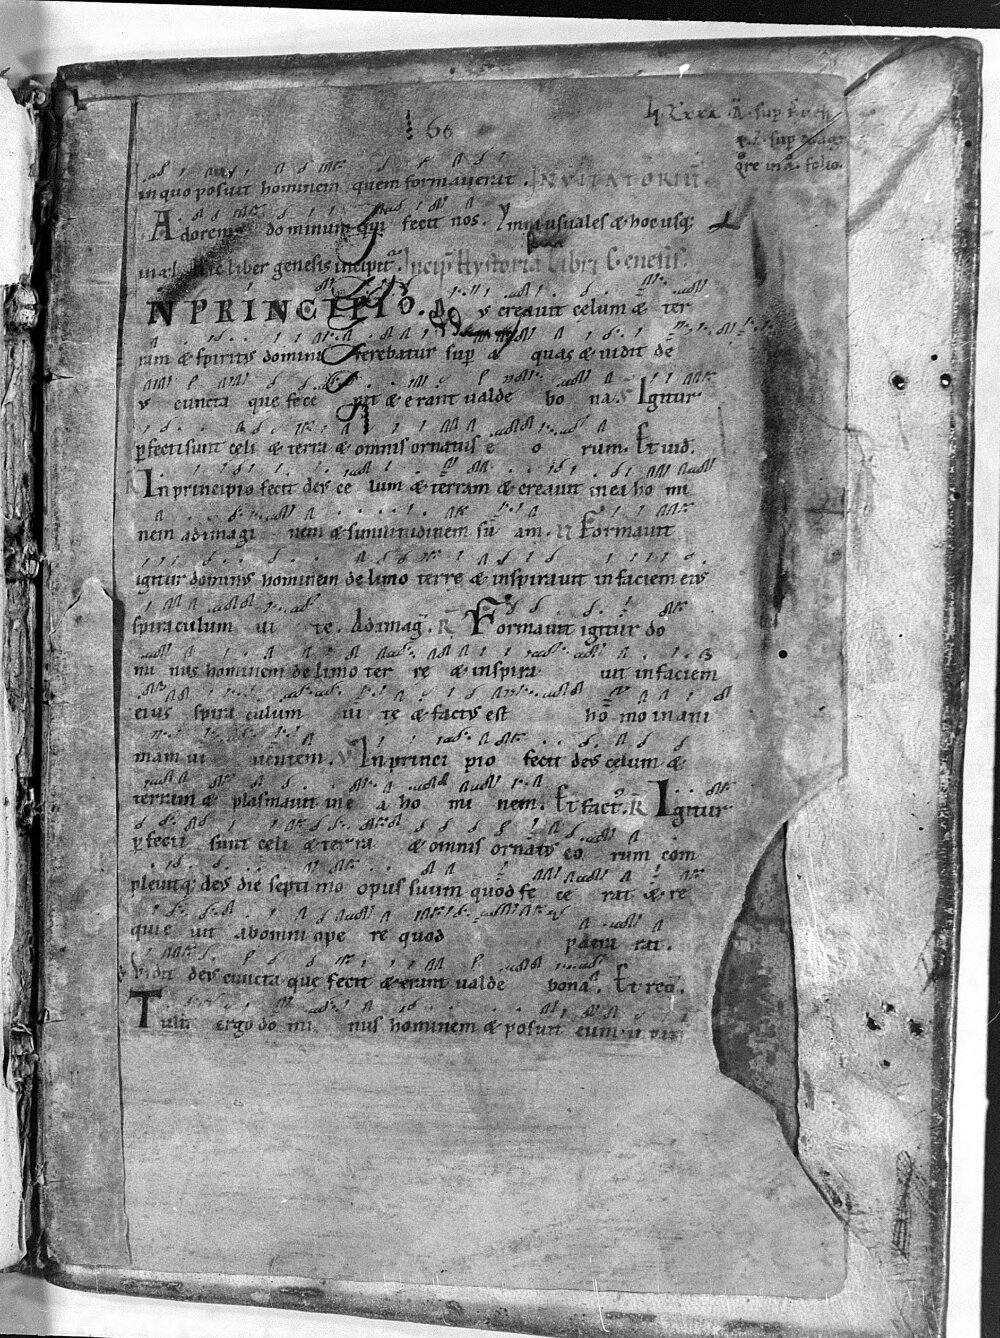 60
in quo posuit hominem quem formauerat. INVITATORIU
Adorem dominum qui fecit nos. Ymni usuales & hoc usq;
liber genesis incipit. Incip Hystoria Libri Genesis.
N PRINCIPIO. creauit celum & ter
ram & spiritus domini ferebatur sup a quas & uidit de
us cuncta que fece rat & erant ualde bo na. Igitur
pfecti sunt celi & terra & omnis ornatus e o rum. Et uid.
In principio fecit deus ce lum & terram & creauit in ea ho mi
nem ad imagi nem & similitudinem su am. Formauit
igitur dominus hominem de limo terre & inspirauit in faciem eius
spiraculum ui te. Ad imag. R Formauit igitur do
mi nus hominem de limo ter re & inspira uit in faciem
eius spira culum ui te & factus est ho mo in ani
mam ui uentem. In princi pio fecit deus celum &
terram & plasmauit in e a ho mi nem. Et fact. R Igitur
pfecti sunt celi & terra & omnis ornatus eo rum com
pleuitq; deus die septi mo opus suum quod fe ce rat & re
quie uit ab omni ope re quod patra rat.
Vidit deus cuncta que fecit & erant ualde bona. Et req.
Tulit ergo do mi nus hominem & posuit eum in